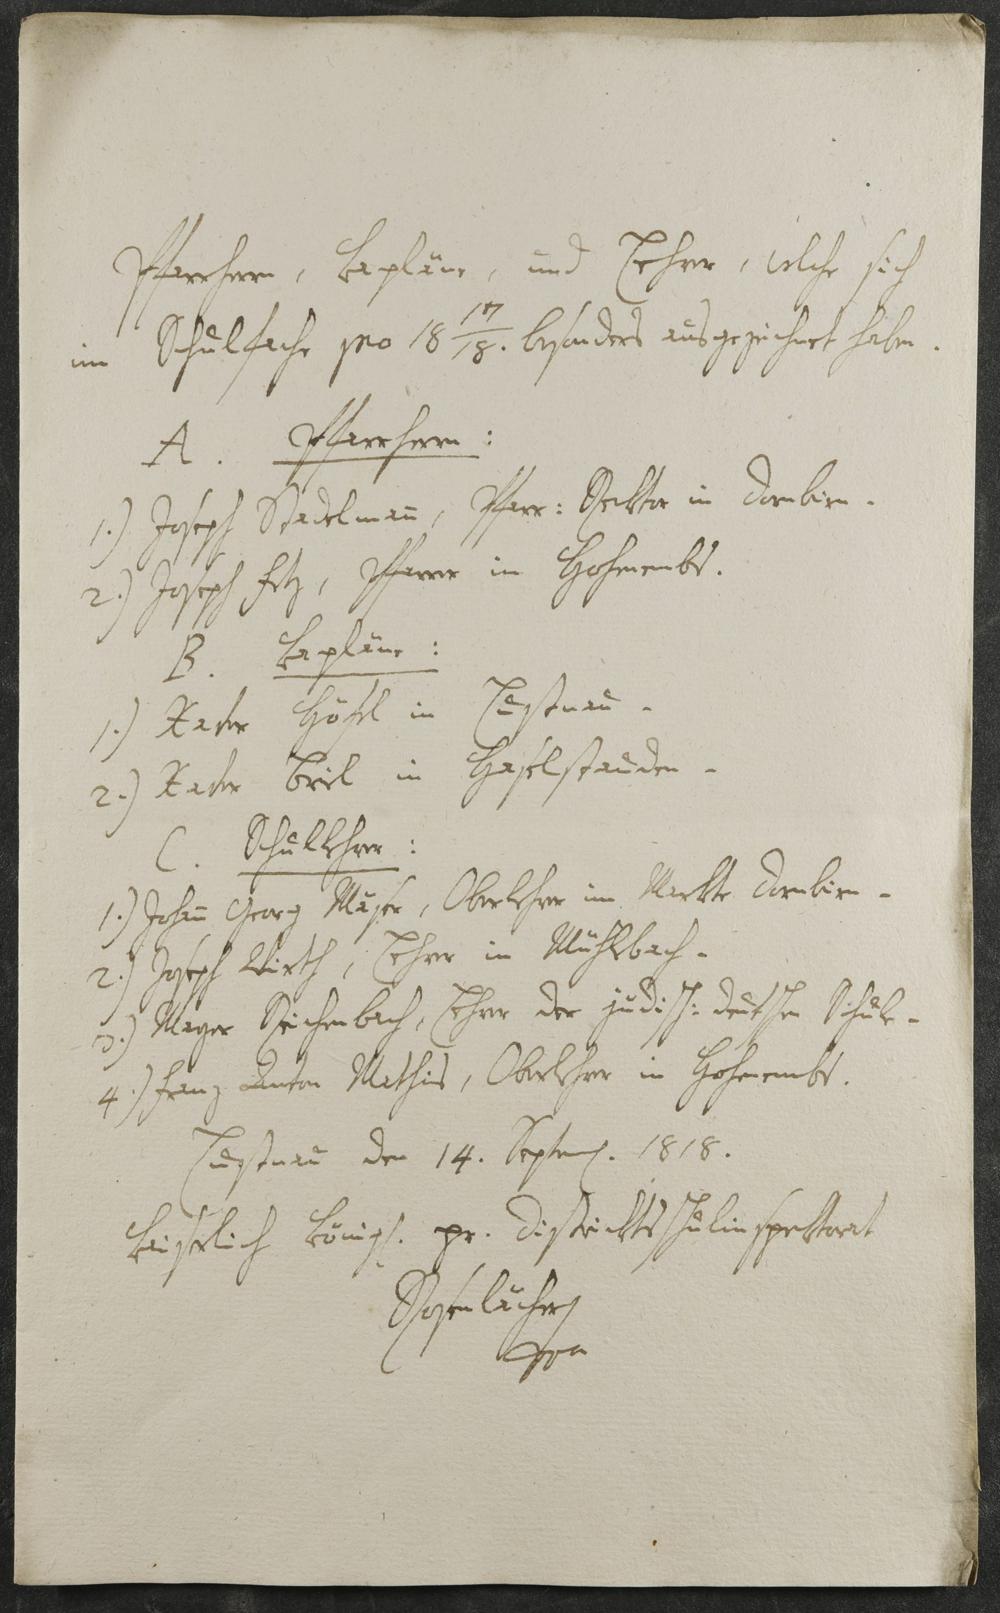 Pfarrherrn, Kapläne, und Lehrer, welche sich
im Schulfache pro 18 17/18. besonders ausgezeichnet haben.
A. Pfarrherrn:
1.) Joseph Stadelmañ, Pfarr: Rektor in Dornbirn.
2.) Joseph Fetz, Pfarrer in Hohenembs.
B. Kapläne:
1.) Xaver Höfel in Lustnau.
2.) Xaver Bröll in Haselstauden.
C. Schullehrer:
1.) Johañ Georg Mäser, Oberlehrer im Markte Dornbirn.
2.) Joseph Wirth, Lehrer in Mühlebach.
3.) Mayer Reichenbach, Lehrer der jüdisch-deutschen Schule.
4.) Franz Anton Mathis, Oberlehrer in Hohenembs.
Lustnau den 14. Septemb. 1818.
Kaiserlich Königl. pr. Distriktsschulinspektorat
Rosenlächer